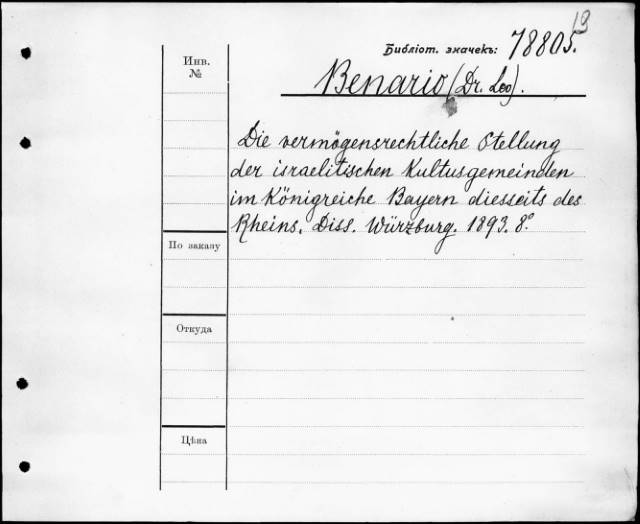 13
Библіот. значекъ: 78805.
Инв.
№
Benario (Dr. Leo).
Die vermögensrechtliche Stellung
der israelitischen Kultusgemeinden
im Königreiche Bayern diesseits des
Rheins. Diss. Würzburg. 1893. 8°
По заказу
Откуда
Цѣна